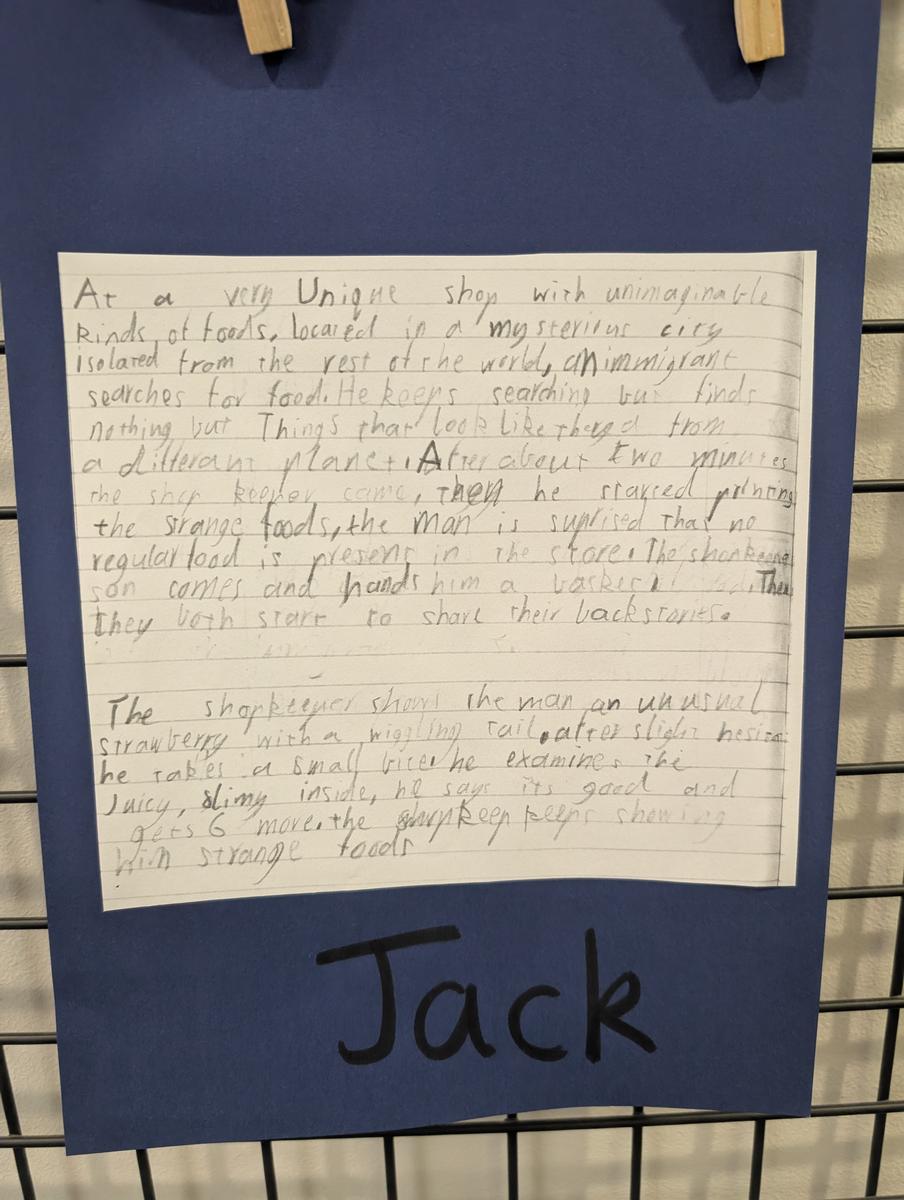 At a very Unique shop with unimaginable
kinds of foods, located in a mysterious city
isolated from the rest of the world, an immigrant
searches for food. He keeps searching but finds
nothing but Things that look like they'd from
a differant planet. After about two minutes
the shop keeper came, then he started
the strange foods, the man is suprised that no
regular food is present in the store. The
son comes and hands him a basket. Then
they both start to share their backstories.
The shopkeeper shows the man an unusual
strawberry with a wiggling tail, after slight
he takes a small bite. he examines the
Juicy, slimy inside, he says its good and
gets 6 more. the shopkeep keeps showing
him strange foods
Jack